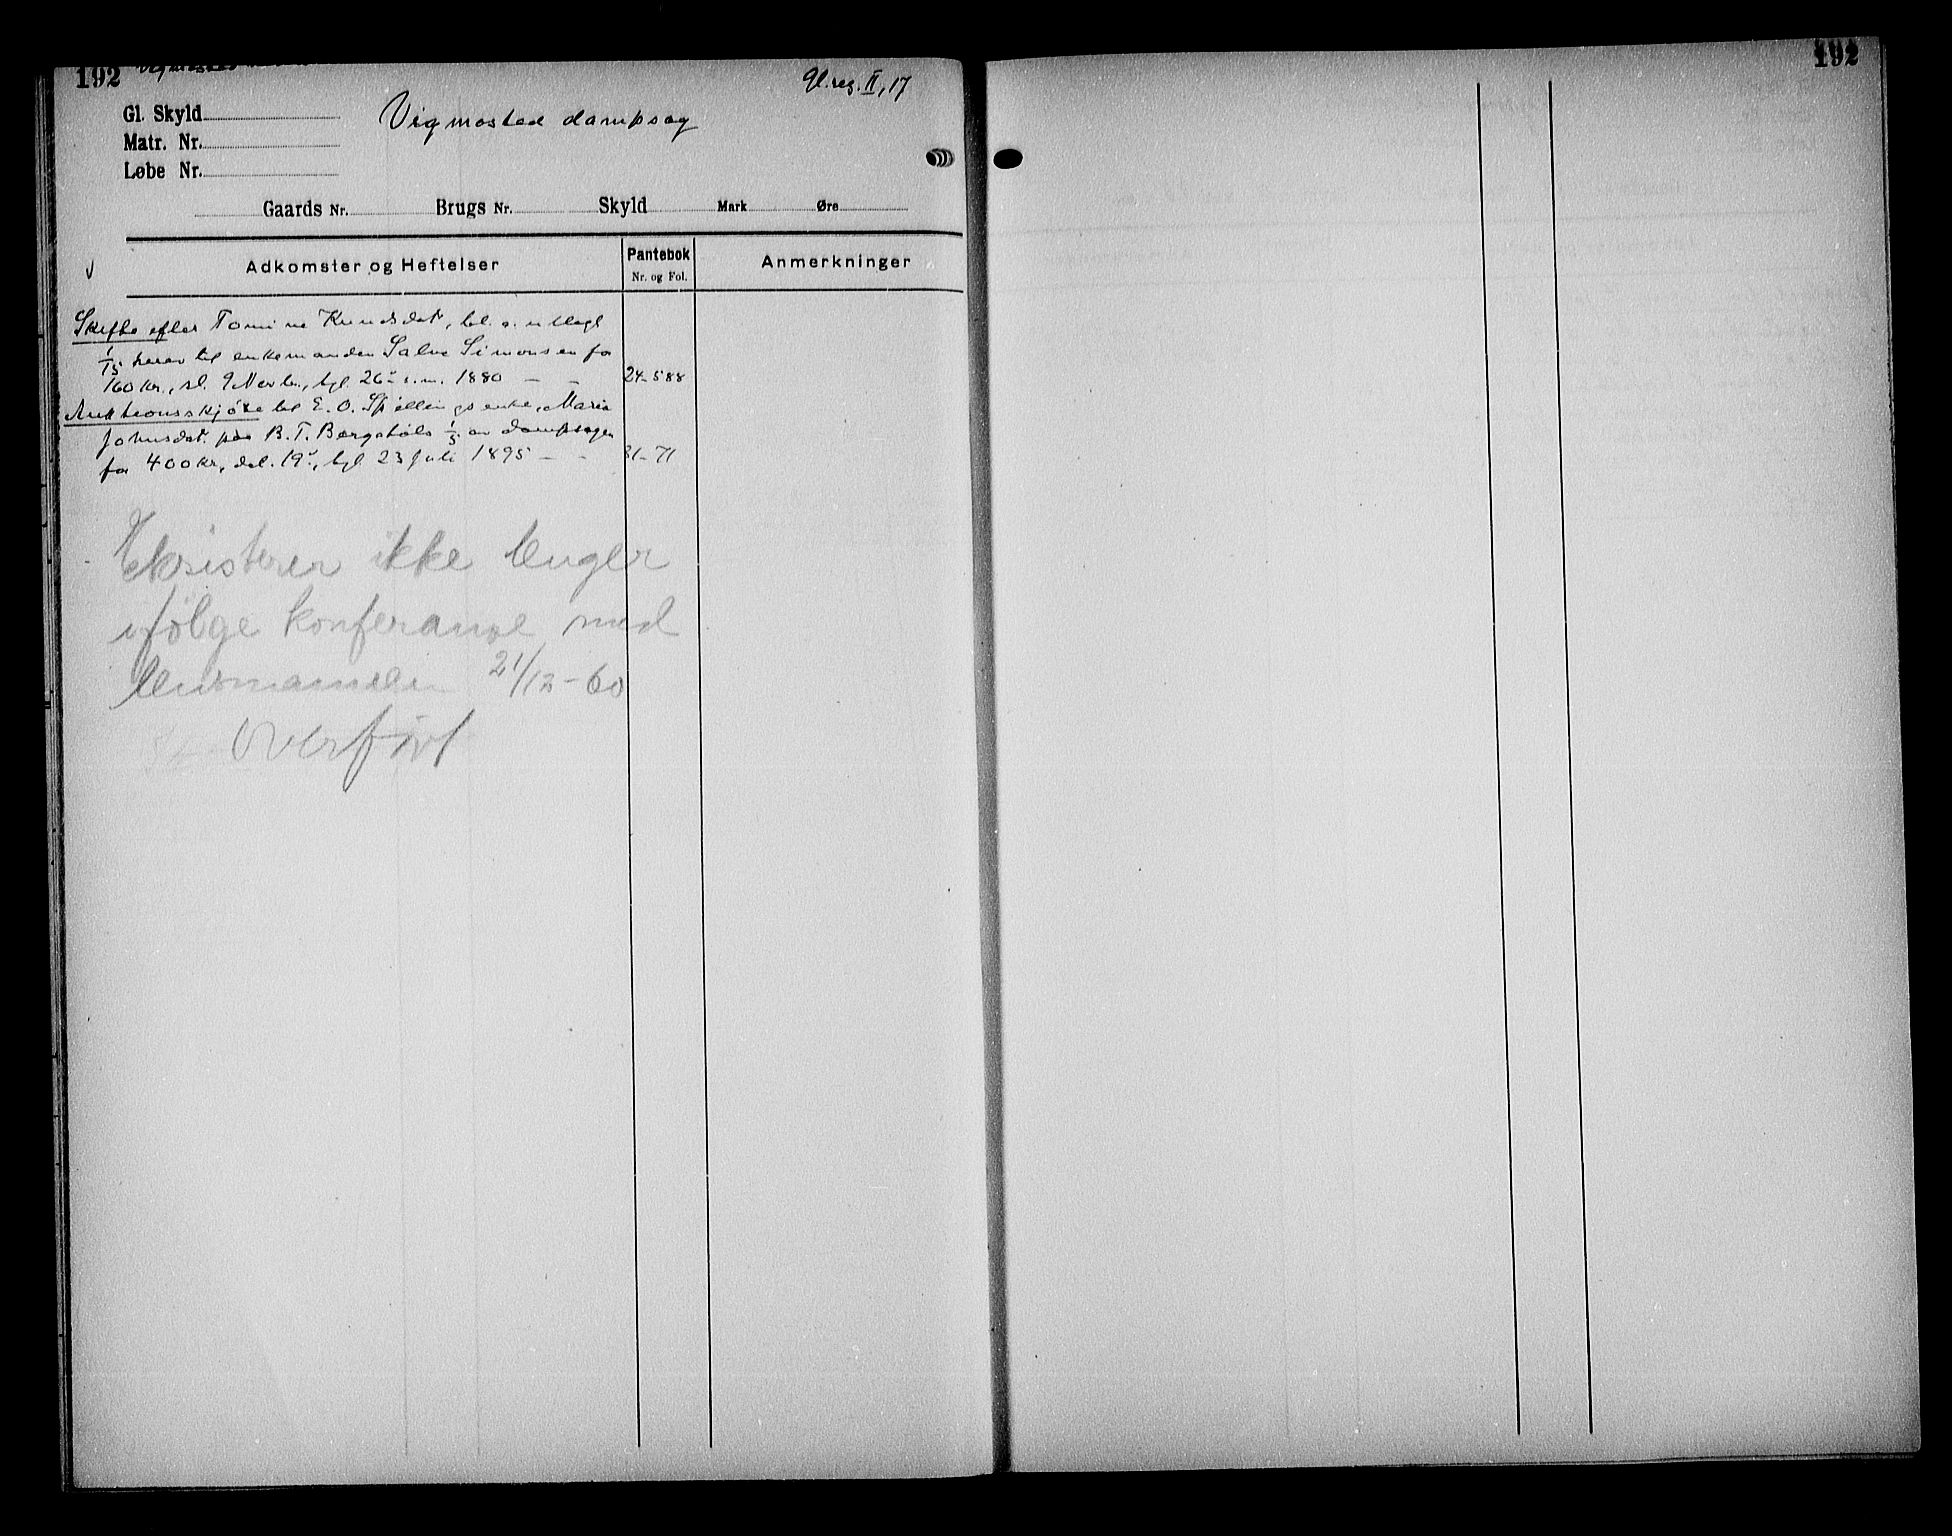 192
192
Gl. reg. II, 17
Gl. Skyld
Vigmosted dampsag
Matr. Nr.
Løbe Nr.
Gaards Nr. Brugs Nr. Skyld Mark Øre
Adkomster og Heftelser
Pantebok
Nr. og Fol.
Anmerkninger
Skifte efter Tomine Knudsdat., bl. a. utlagt
1/15 herav til enkemanden Salve Simonsen for
160 kr., sl. 9 Novbr., tgl. 26. s. m. 1880 — — 24-588
Auktionsskjøte til E. O. Spillings enke, Maria
Johnsdat. paa B. T. Bergstøls 1/5 av dampsagen
for 400 kr., dat. 19., tgl. 23 juli 1895 — — 31-71
Eksisterer ikke lenger
ifølge konferanse med
lensmannen 21/12-60
Overført